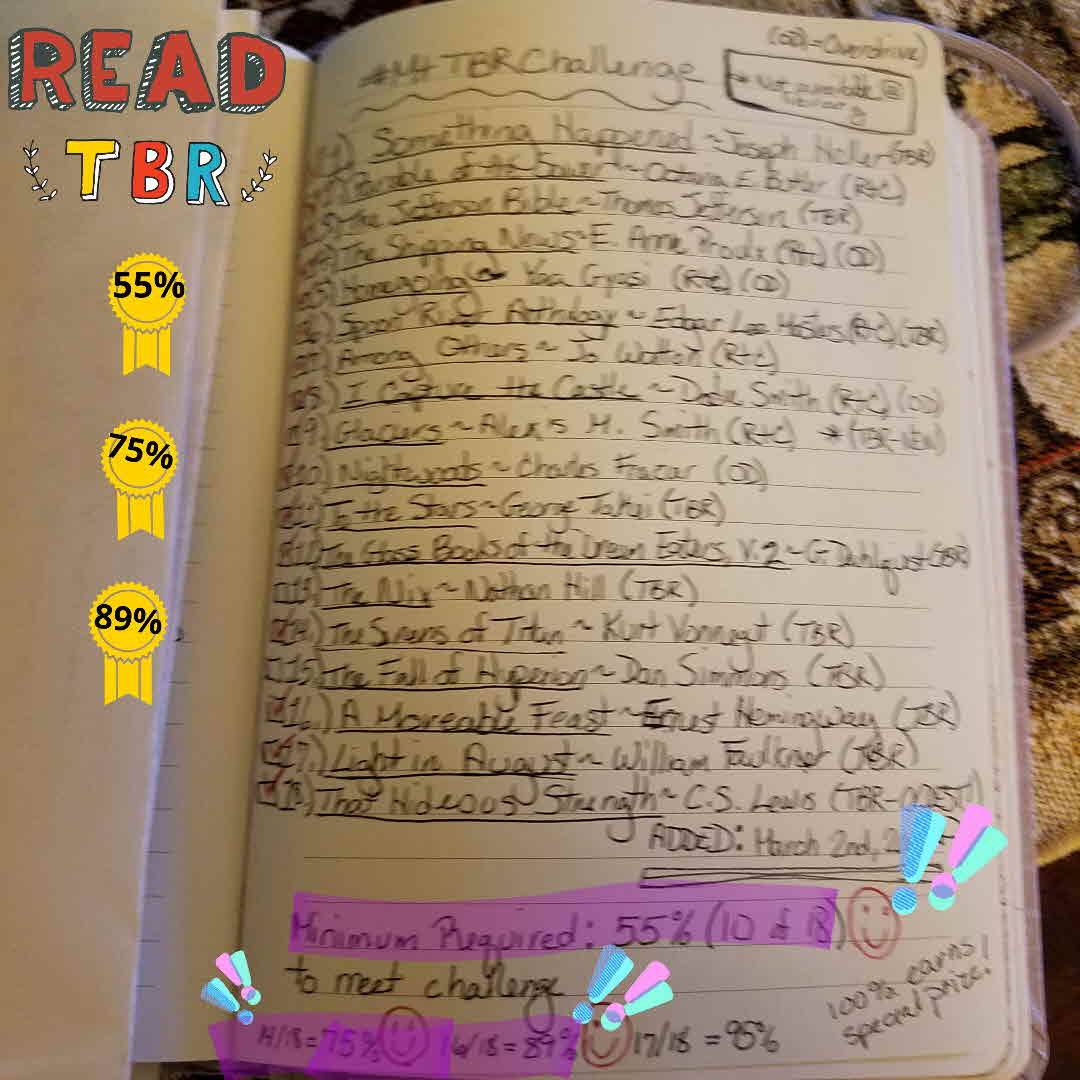 READ
TBR
55%
75%
89%
(OD)=Overdrive)
#MtTBRChallenge
library
1.) Something Happened ~ Joseph Heller (TBR)
2.) Parable of the Sower ~ Octavia E. Butler (R+C)
3.) The Jefferson Bible ~ Thomas Jefferson (TBR)
4.) The Shipping News ~ E. Annie Proulx (R+C) (OD)
5.) Homegoing ~ Yaa Gyasi (R+C) (OD)
6.) Spoon River Anthology ~ Edgar Lee Masters (R+C) (TBR)
7.) Among Others ~ Jo Walton (R+C)
8.) I Capture the Castle ~ Dodie Smith (R+C) (OD)
9.) Glaciers ~ Alexis M. Smith (R+C) *(TBR-NEW)
10.) Nightwoods ~ Charles Frazier (OD)
11.) To the Stars ~ George Takei (TBR)
12.) The Glass Books of the Dream Eaters, V.2 ~ G. Dahlquist (TBR)
13.) The Nix ~ Nathan Hill (TBR)
14.) The Sirens of Titan ~ Kurt Vonnegut (TBR)
15.) The Fall of Hyperion ~ Dan Simmons (TBR)
16.) A Moveable Feast ~ Ernest Hemingway (TBR)
17.) Light in August ~ William Faulkner (TBR)
18.) That Hideous Strength ~ C.S. Lewis (TBR-OLDEST)
ADDED: March 2nd,
Minimum Required: 55% (10 of 18)
to meet challenge
100% earns
special prize!
14/18=75% 16/18=89% 17/18=95%